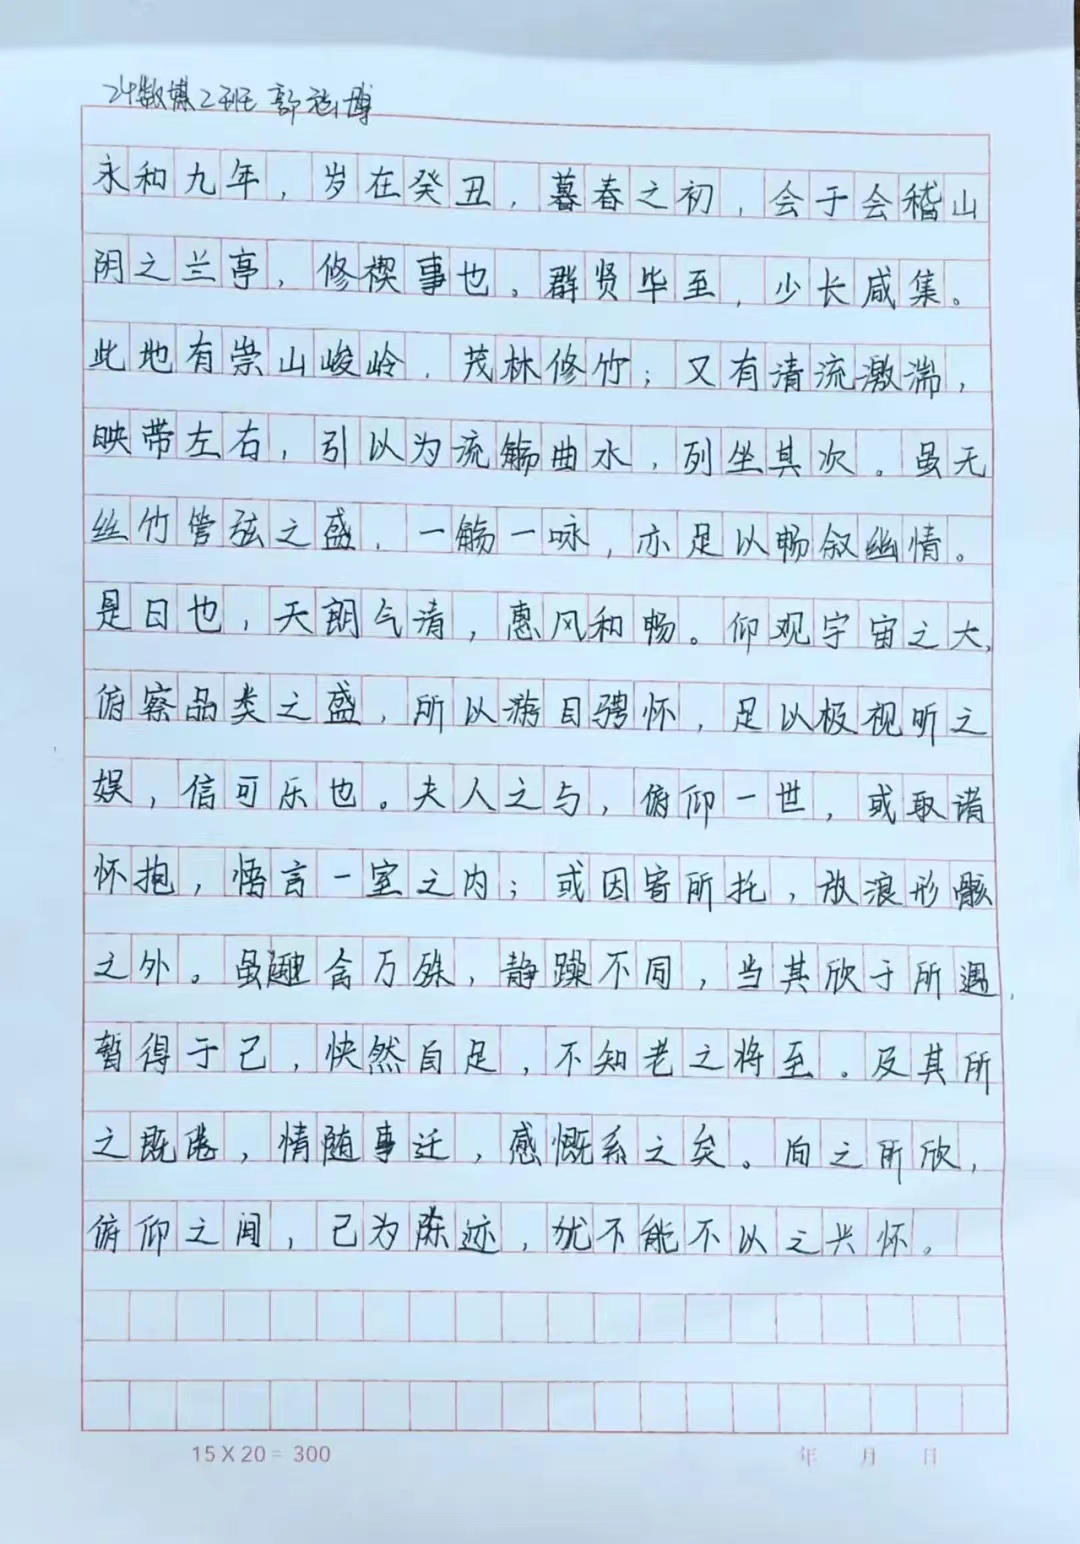 24数媒2班 郭 博
永和九年，岁在癸丑，暮春之初，会于会稽山
阴之兰亭，修禊事也。群贤毕至，少长咸集。
此地有崇山峻岭，茂林修竹；又有清流激湍，
映带左右，引以为流觞曲水，列坐其次。虽无
丝竹管弦之盛，一觞一咏，亦足以畅叙幽情。
是日也，天朗气清，惠风和畅。仰观宇宙之大，
俯察品类之盛，所以游目骋怀，足以极视听之
娱，信可乐也。夫人之与，俯仰一世，或取诸
怀抱，悟言一室之内；或因寄所托，放浪形骸
之外。虽趣舍万殊，静躁不同，当其欣于所遇，
暂得于己，快然自足，不知老之将至。及其所
之既倦，情随事迁，感慨系之矣。向之所欣，
俯仰之间，已为陈迹，犹不能不以之兴怀。
15X20=300 年 月 日